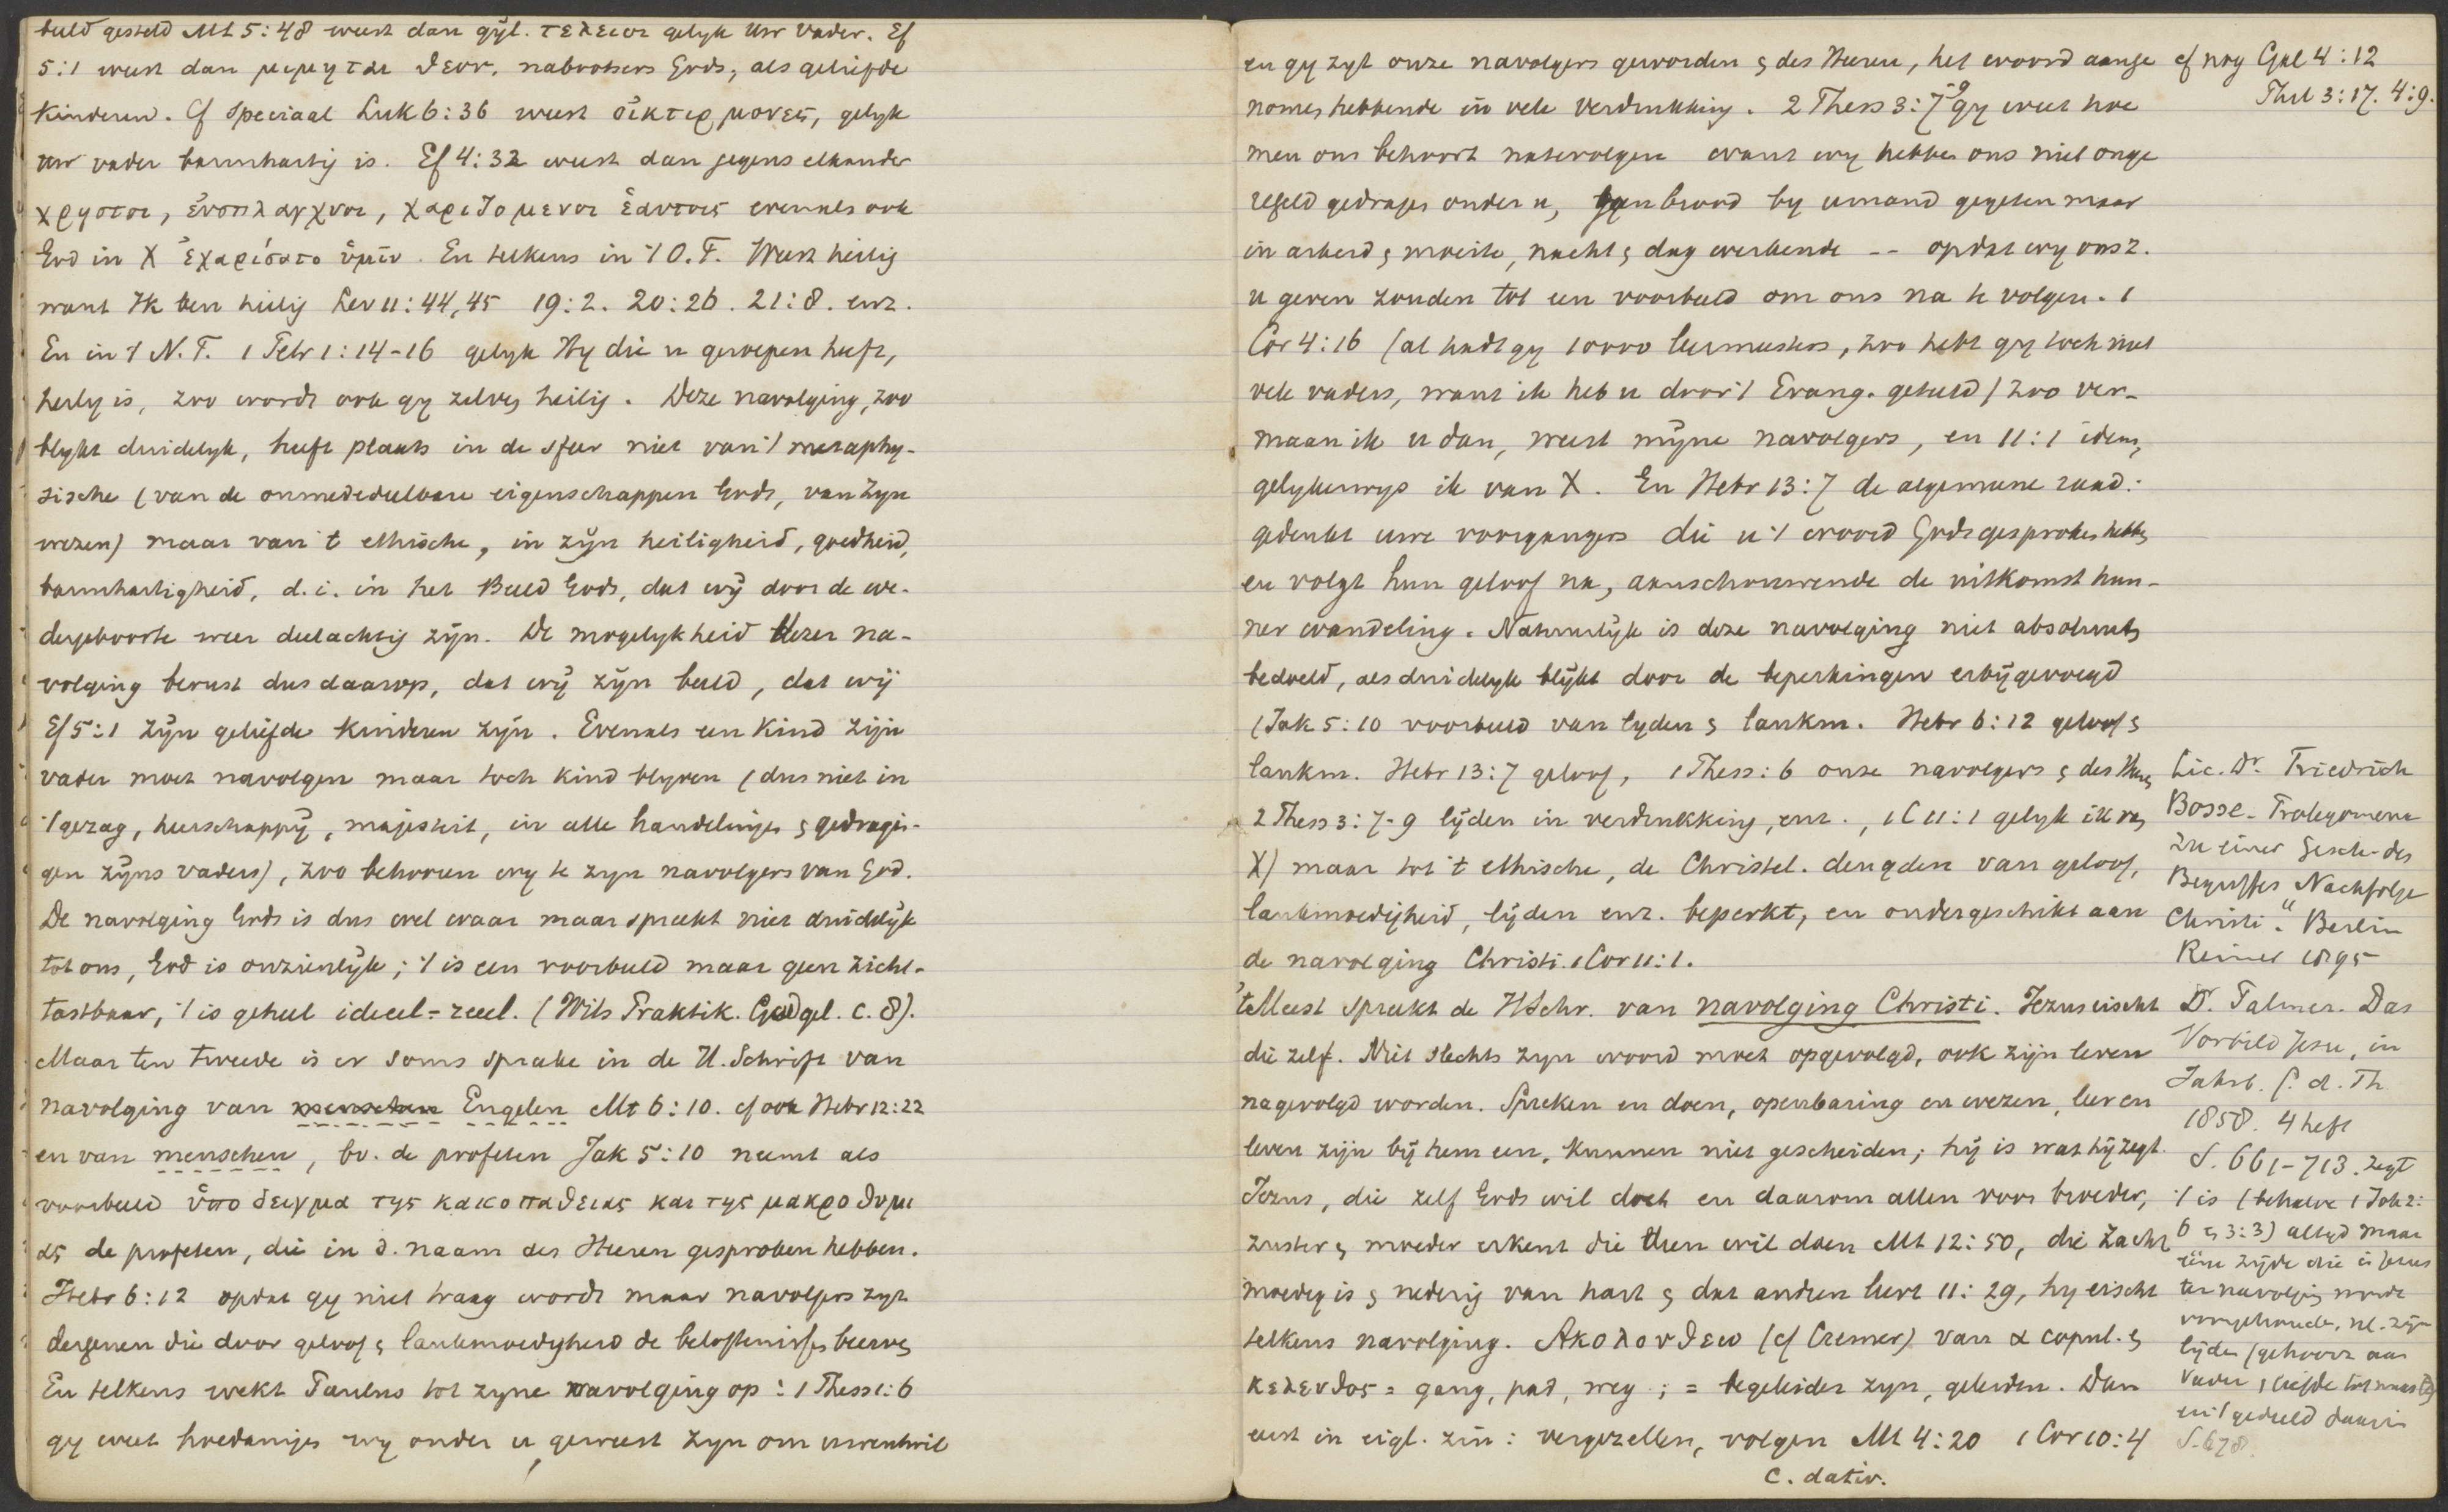 beeld gesteld Mt 5:48 weest dan gijl. τελειοι gelyk Uw Vader. Ef
5:1 weest dan μιμηται θεου, nabootsers Gods, als geliefde
kinderen. Cf speciaal Luk 6:36 weest οἰκτιρμονες, gelyk
uw vader barmhartig is. Ef 4:32 weest dan jegens elkander
χρηστοι, ἐυσπλαγχνοι, χαριζομενοι ἑαυτοις evenals ook
God in X ἐχαρίσατο ὑμῖν. En telkens in 't O.T. Weest heilig
want Ik ben heilig Lev 11:44,45 19:2. 20:26. 21:8. enz.
En in 't N.T. 1 Petr 1:14-16 gelyk Hy die u geroepen heeft,
heilig is, zoo wordt ook gy zelves heilig. Deze navolging, zoo
blykt duidelyk, heeft plaats in de sfeer niet van 't metaphy-
sische (van de onmededeelbare eigenschappen Gods, van Zyn
wezen) maar van 't ethische, in zijn heiligheid, goedheid,
barmhartigheid, d.i. in het Beeld Gods, dat wij door de we-
dergeboorte weer deelachtig zijn. De mogelykheid dezer na-
volging berust dus daarop, dat wij zijn beeld, dat wij
Ef 5:1 zijn geliefde kinderen zijn. Evenals een Kind zijn
vader moet navolgen maar toch kind blyven (dus niet in
't gezag, heerschappij, majesteit, in alle handelingen & gedragin-
gen zijns vaders), zoo behooren wy te zyn navolgers van God.
De navolging Gods is dus wel waar maar spreekt niet duidelijk
tot ons, God is onzienlijk; 't is een voorbeeld maar geen zicht-
tastbaar, 't is geheel ideeel-reeel. (Wits Praktik. Godgel. C. 8).
Maar ten tweede is er soms sprake in de H. Schrift van
navolging van menschen Engelen Mt 6:10. cf ook Hebr 12:22
en van menschen, bv. de profeten Jak 5:10 neemt als
voorbeeld ὑποδειγμα της κακοπαθειας και της μακροθυμι
ας de profeten, die in d. naam des Heeren gesproken hebben.
Hebr 6:12 opdat gy niet traag wordt maar navolgers zyt
dergenen die door geloof & lankmoedigheid de beloftenissen beerven
En telkens wekt Paulus tot zyne navolging op: 1 Thess 1:6
gy weet hoedanigen wy onder u geweest zyn om uwentwil
en gy zyt onze navolgers geworden & des Heeren, het woord aange
nomen hebbende in vele verdrukking. 2 Thess 3:7-9 gy weet hoe
men ons behoort natevolgen want wy hebben ons niet onge
regeld gedragen onder u, geen brood by iemand gegeten maar
in arbeid & moeite, nacht & dag werkende -- opdat wy ons z.
u geven zouden tot een voorbeeld om ons na te volgen. 1
Cor 4:16 (al hadt gy 10000 leermeesters, zoo hebt gy toch niet
vele vaders, want ik heb u door 't Evang. geteeld) zoo ver-
maan ik u dan, weest mijne navolgers, en 11:1 idem,
gelykerwys ik van X. En Hebr 13:7 de algemeene raad:
gedenkt uwe voorgangers die u 't woord Gods gesproken hebben
en volgt hun geloof na, aanschouwende de uitkomst hun-
ner wandeling. Natuurlijk is deze navolging niet absoluut
bedoeld, als duidelyk blijkt door de beperkingen erbijgevoegd
(Jak 5:10 voorbeeld van lyden & lankm. Hebr 6:12 geloof &
lankm. Hebr 13:7 geloof, 1 Thess: 6 onze navolgers & des Heeren
2 Thess 3:7-9 lijden in verdrukking, enz., 1 C 11:1 gelyk ik van
X) maar tot 't ethische, de Christel. deugden van geloof,
lankmoedigheid, lijden enz. beperkt, en ondergeschikt aan
de navolging Christi. 1 Cor 11:1.
't Meest spreekt de HSchr. van navolging Christi. Jezus eischt
die zelf. Niet slechts zyn woord moet opgevolgd, ook zijn leven
nagevolgd worden. Spreken en doen, openbaring en wezen, leer en
leven zijn bij hem een, kunnen niet gescheiden; hij is wat hij zegt.
Jezus, die zelf Gods wil doet en daarom allen voor broeder,
zuster & moeder erkent die dien wil doen Mt 12:50, die zacht
moedig is & nederig van hart & dat anderen leert 11:29, hy eischt
telkens navolging. Ακολουθεω (cf Cremer) van α copul. &
κελευθος = gang, pad, weg; = begeleider zyn, geleiden. Dan
eerst in eigl. zin: vergezellen, volgen Mt 4:20 1 Cor 10:4
c. dativ.
cf nog Gal 4:12
Phil 3:17. 4:9.
Lic. Dr. Friedrich
Bosse. Prolegomena
zu einer Gesch. des
Begriffes "Nachfolge
Christi". Berlin
Reimer 1895
Dr. Palmer. Das
Vorbild Jesu, in
Jahrb. f. d. Th.
1858. 4 heft
S. 661-713. zegt
't is (behalve 1 Joh 2:
6 & 3:3) altyd maar
eene zijde die in Jezus
ter navolging wordt
voorgehouden, nl. zijn
lijden (gehoorz aan
Vader, liefde tot naasten)
en 't geduld daarin
S. 678.